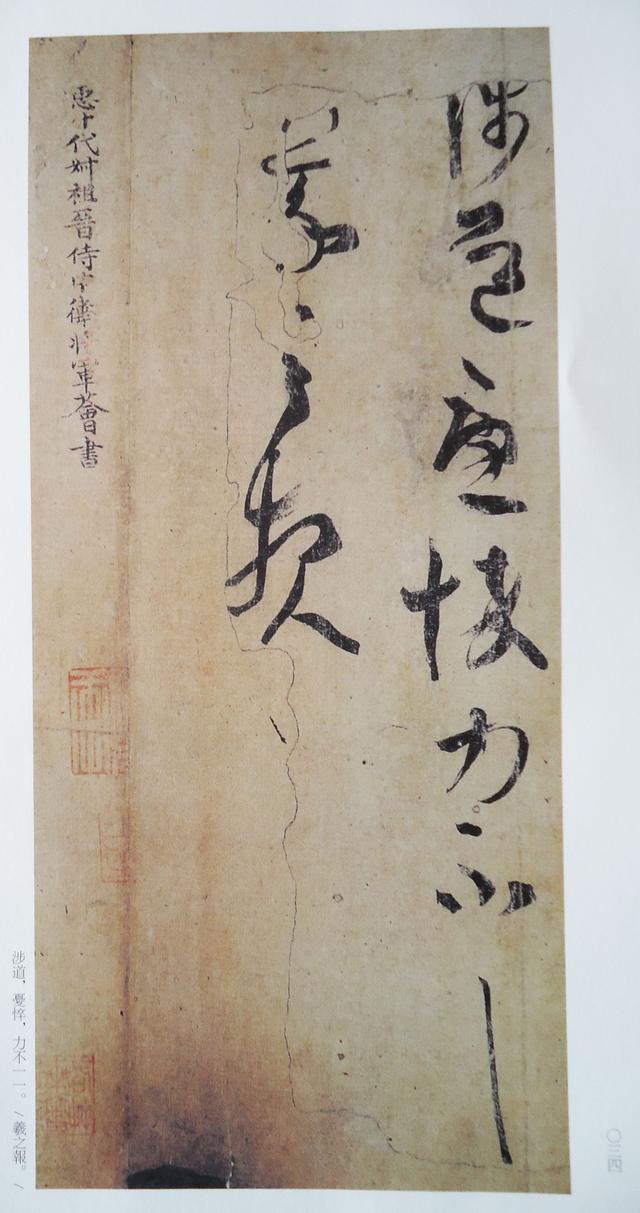 涉道憂悴力不一一
羲之報
臣十代再從伯祖晉侍中衛將軍薈書
涉道，憂悴，力不一一。/羲之報。/
〇三四